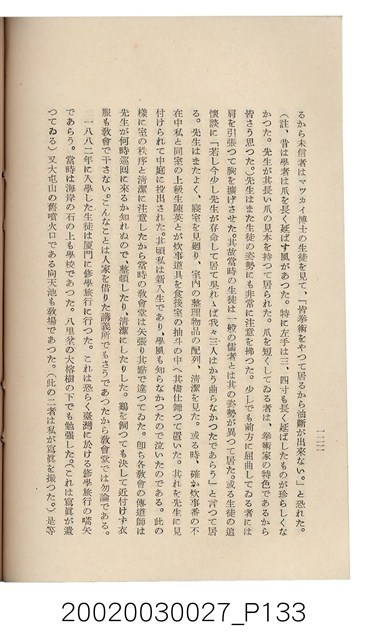 一二二
るから未信者はマツカイ博士の生徒を見て、「皆拳術をやつて居るから油斷が出來ない。」と恐れた。
(註、昔は學者は爪を長く延ばす風があつた。特に左手は三、四寸も長く延ばしたものが珍らしくな
かつた。先生が其長い爪の見本を持つて居られた。爪を短くしてゐる者は、拳術家の特色であるから
皆さう思つた。)先生はまた生徒の姿勢にも非常に注意を拂つた。少しでも前方に屈曲してゐる者には
肩を引張つて胸を擴げさせた。其故當時の生徒は一般の儒者とは其の姿勢が異つて居た。或る生徒の追
懷談に「若し今少し先生が存命して居て吳れゝば我々三人はかう曲らなかつたであらう」と言つて居
る。先生はまたよく、寢室を見廻り、室內の整理物品の配列、淸潔を見た。或る時、確か炊事番の不
在中私と同室の上級生陳英とが炊事道具を食後室の抽斗の中へ其儘仕舞つて置いた。其れを先生に見
付けられて中庭に投出された。其頃私は新入生であり、學風も知らなかつたので泣いたのである。此の
樣に室の秩序と淸潔に注意したから當時の敎會堂は矢張り步騶で違つてゐた。卽ち各敎會の傳道師は
先生が何時巡回に來るか知れぬので、整頓したり、淸潔にしたりした。鷄を飼つても決して近付けず衣
服も敎會で干さない。こんなことは人家を借りた講義所でもさうであつたから敎會堂では勿論である。
一八八二年に入學した生徒は厦門に修學旅行に行つた。これは恐らく臺灣に於ける修學旅行の嚆矢
であらう。當時は海岸の石の上も學校であつた。八里坌の大榕樹の下でも勉强した。(これは寫眞が遺
つてゐる)又大屯山の舊噴火口である向天池も敎場であつた。(此の二者は私が寫眞を撮つた。)是等
20020030027_P133